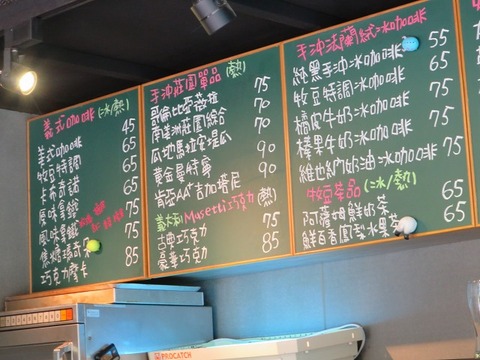 義式咖啡 (冰/熱)
義式咖啡 45
牧豆特調 65
卡布奇諾 65
原味拿鐵 65
風味拿鐵 75
焦糖瑪奇朵 75
巧克力摩卡 85
手沖莊園單品 (熱)
哥倫比亞薇拉 75
南美洲莊園綜合 70
瓜地馬拉安堤瓜 70
黃金曼特寧 90
肯亞AA+吉加塔尼 90
義大利Musetti巧克力 (熱)
古典巧克力 75
豪華巧克力 85
手沖法蘭絨冰咖啡
純黑手沖冰咖啡 55
牧豆特調冰咖啡 65
橘皮牛奶冰咖啡 75
榛果牛奶冰咖啡 75
維也納奶油冰咖啡 75
牧豆茶品 (冰/熱)
阿薩姆鮮奶茶 65
鮮百香鳳梨水果茶 65
PROCATCH